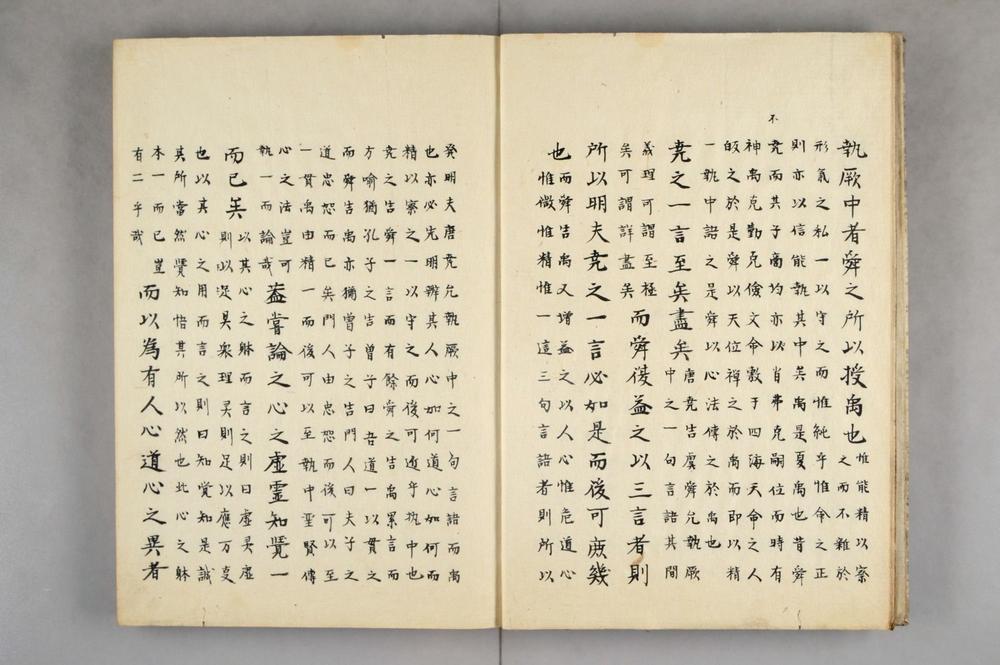 執厥中者舜之所以授禹也惟能精以察
之而不雜於
形氣之私一以守之而惟純乎惟命之正
則亦以信能執其中矣禹是夏禹也昔舜
不
堯而其子商均亦以肖弗克嗣位而時有
神禹克勤克儉文命敷于四海天命之人
皈之於是舜以天位禪之於禹而即以精
一執中語之是舜以心法傳之於禹也
堯之一言至矣盡矣唐堯告虞舜允執厥
中之一句言語其間
義理可謂至極
矣可謂詳盡矣而舜復益之以三言者則
所以明夫堯之一言必如是而後可庶幾
也而舜告禹又增益之以人心惟危道心
惟微惟精惟一這三句言語者則所以
發明夫唐堯允執厥中之一句言語而禹
也亦必先明辨其人心如何道心如何而
精以察之一以守之而後可造乎執中也
堯之告舜一言而有餘舜之告禹累言而
方喻猶孔子之告曾子曰吾道一以貫之
而舜告禹亦猶曾子之告門人曰夫子之
道忠恕而已矣門人由忠恕而後可以至
一貫禹由精一而後可以至執中聖賢傳
心之法豈可
執一而論哉蓋嘗論之心之虛靈知覺一
而已矣以其心之躰而言之則曰虛灵虛
則以是具衆理灵則足以應万変
也以其心之用而言之則曰知覺知是識
其所當然覺知悟其所以然也此心之躰
本一而已豈
有二乎哉而以為有人心道心之異者